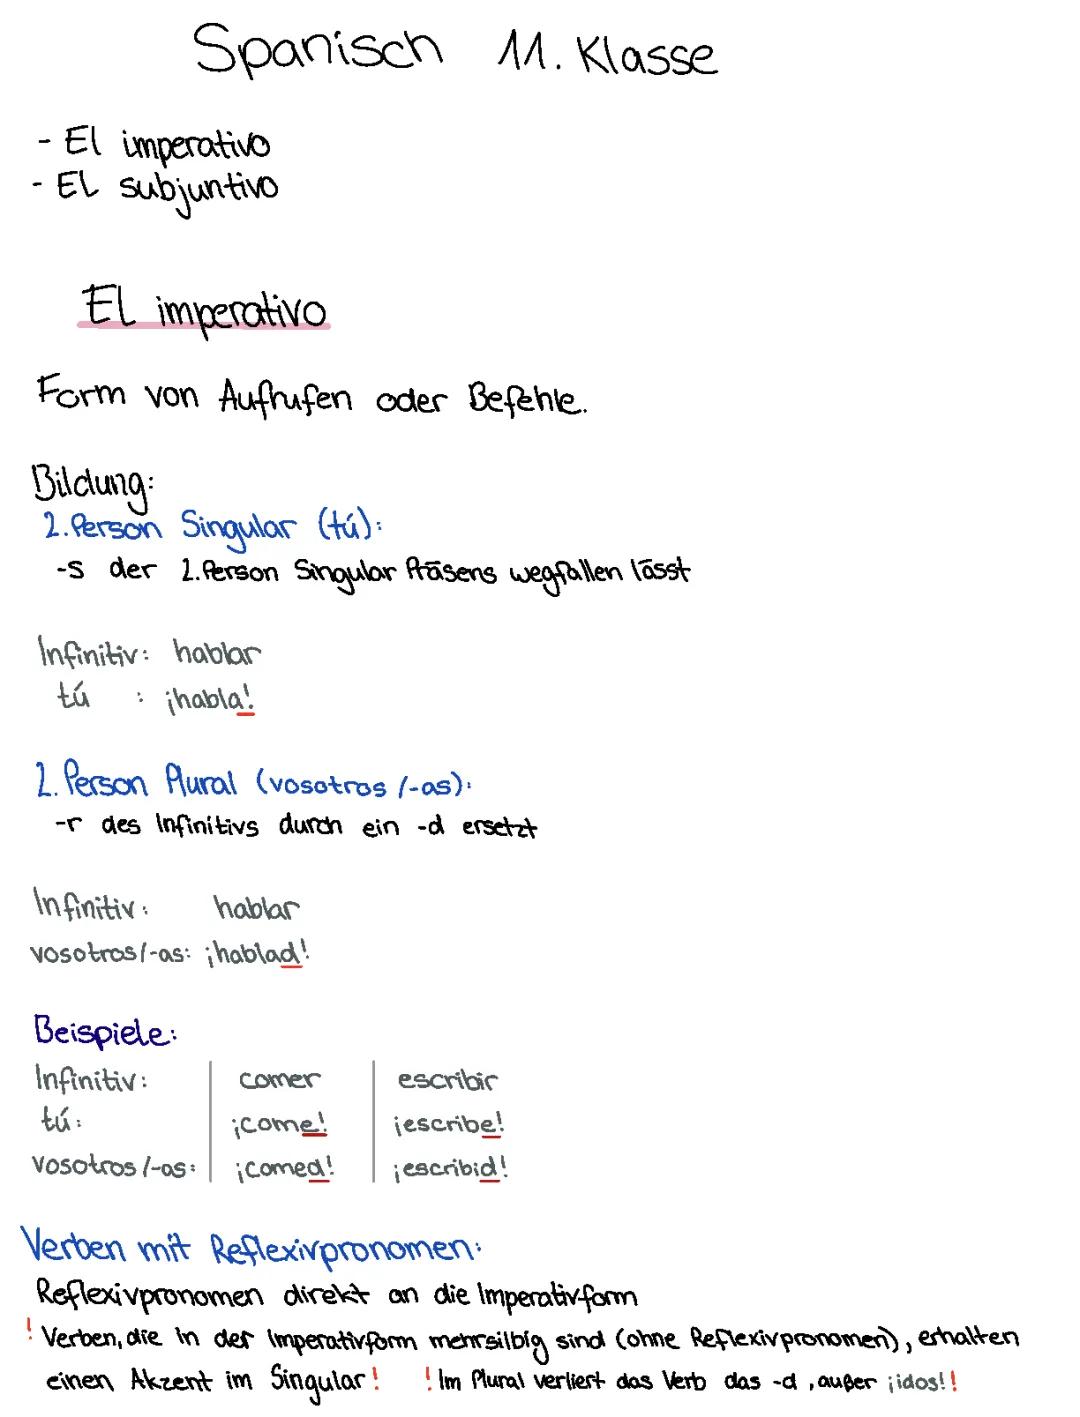 Spanisch 11. Klasse
- El imperativo
- EL subjuntivo
EL imperativo
Form von Aufrufen oder Befehle.
Bildung:
2. Person Singular (tú):
-s der 2. Person Singular Präsens wegfallen lässt
Infinitiv: hablar
tú : ¡habla!
2. Person Plural (vosotros /-as):
-r des Infinitivs durch ein -d ersetzt
Infinitiv: hablar
vosotros/-as: ¡hablad!
Beispiele:
Infinitiv: comer escribir
tú: ¡come! ¡escribe!
vosotros/-as: ¡comed! ¡escribid!
Verben mit Reflexivpronomen:
Reflexivpronomen direkt an die Imperativform
! Verben, die in der Imperativform mehrsilbig sind (ohne Reflexivpronomen), erhalten
einen Akzent im Singular! ! Im Plural verliert das Verb das -d, außer ¡idos!!